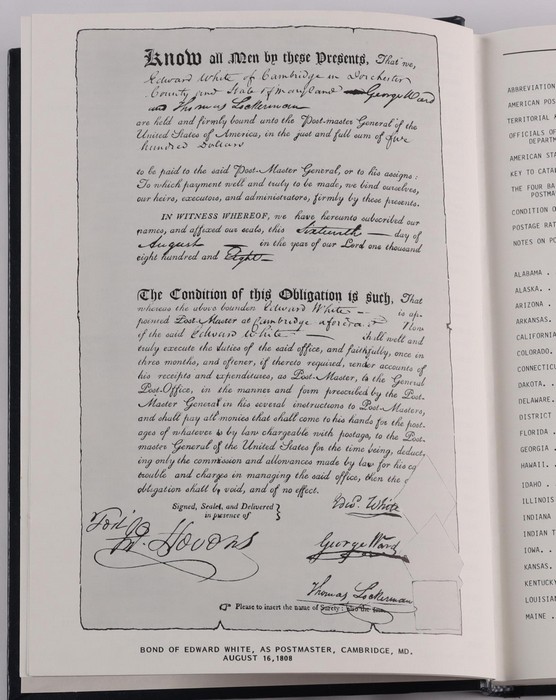 Know all Men by these Presents, That we,
Edward White of Cambridge in Dorchester
County and State of Maryland George Ward
and Thomas Lockerman
are held and firmly bound unto the Post-master General of the
United States of America, in the just and full sum of five
hundred Dollars
to be paid to the said Post-Master General, or to his assigns:
To which payment well and truly to be made, we bind ourselves,
our heirs, executors, and administrators, firmly by these presents.
IN WITNESS WHEREOF, we have hereunto subscribed our
names, and affixed our seals, this Sixteenth day of
August in the year of our Lord one thousand
eight hundred and Eight
The Condition of this Obligation is such, That
whereas the above bounden Edward White is ap-
pointed Post-Master at Cambridge aforesaid Now
if the said Edward White shall well and
truly execute the duties of the said office, and faithfully, once in
three months, and oftener, if thereto required, render accounts of
his receipts and expenditures, as Post-Master, to the General
Post-Office, in the manner and form prescribed by the Post-
Master General in his several instructions to Post-Masters,
and shall pay all monies that shall come to his hands for the post-
ages of whatever is by law chargeable with postage, to the Post-
master General of the United States for the time being, deduct-
ing only the commission and allowances made by law for his
trouble and charges in managing the said office, then the
obligation shall be void, and of no effect.
Signed, Sealed, and Delivered
in presence of
Edwd. White
George Ward
Thomas Lockerman
Please to insert the name of
BOND OF EDWARD WHITE, AS POSTMASTER, CAMBRIDGE, MD.
AUGUST 16, 1808
ABBREVIATION
AMERICAN POS
TERRITORIAL
OFFICIALS OF
DEPARTM
AMERICAN STA
KEY TO CATAL
THE FOUR BA
POSTMA
CONDITION O
POSTAGE RAT
NOTES ON PO
ALABAMA .
ALASKA. .
ARIZONA .
ARKANSAS.
CALIFORNIA
COLORADO.
CONNECTICU
DAKOTA. .
DELAWARE.
DISTRICT
FLORIDA .
GEORGIA .
HAWAII. .
IDAHO .
ILLINOIS
INDIANA
INDIAN T
IOWA. .
KANSAS.
KENTUCKY
LOUISIAN
MAINE .